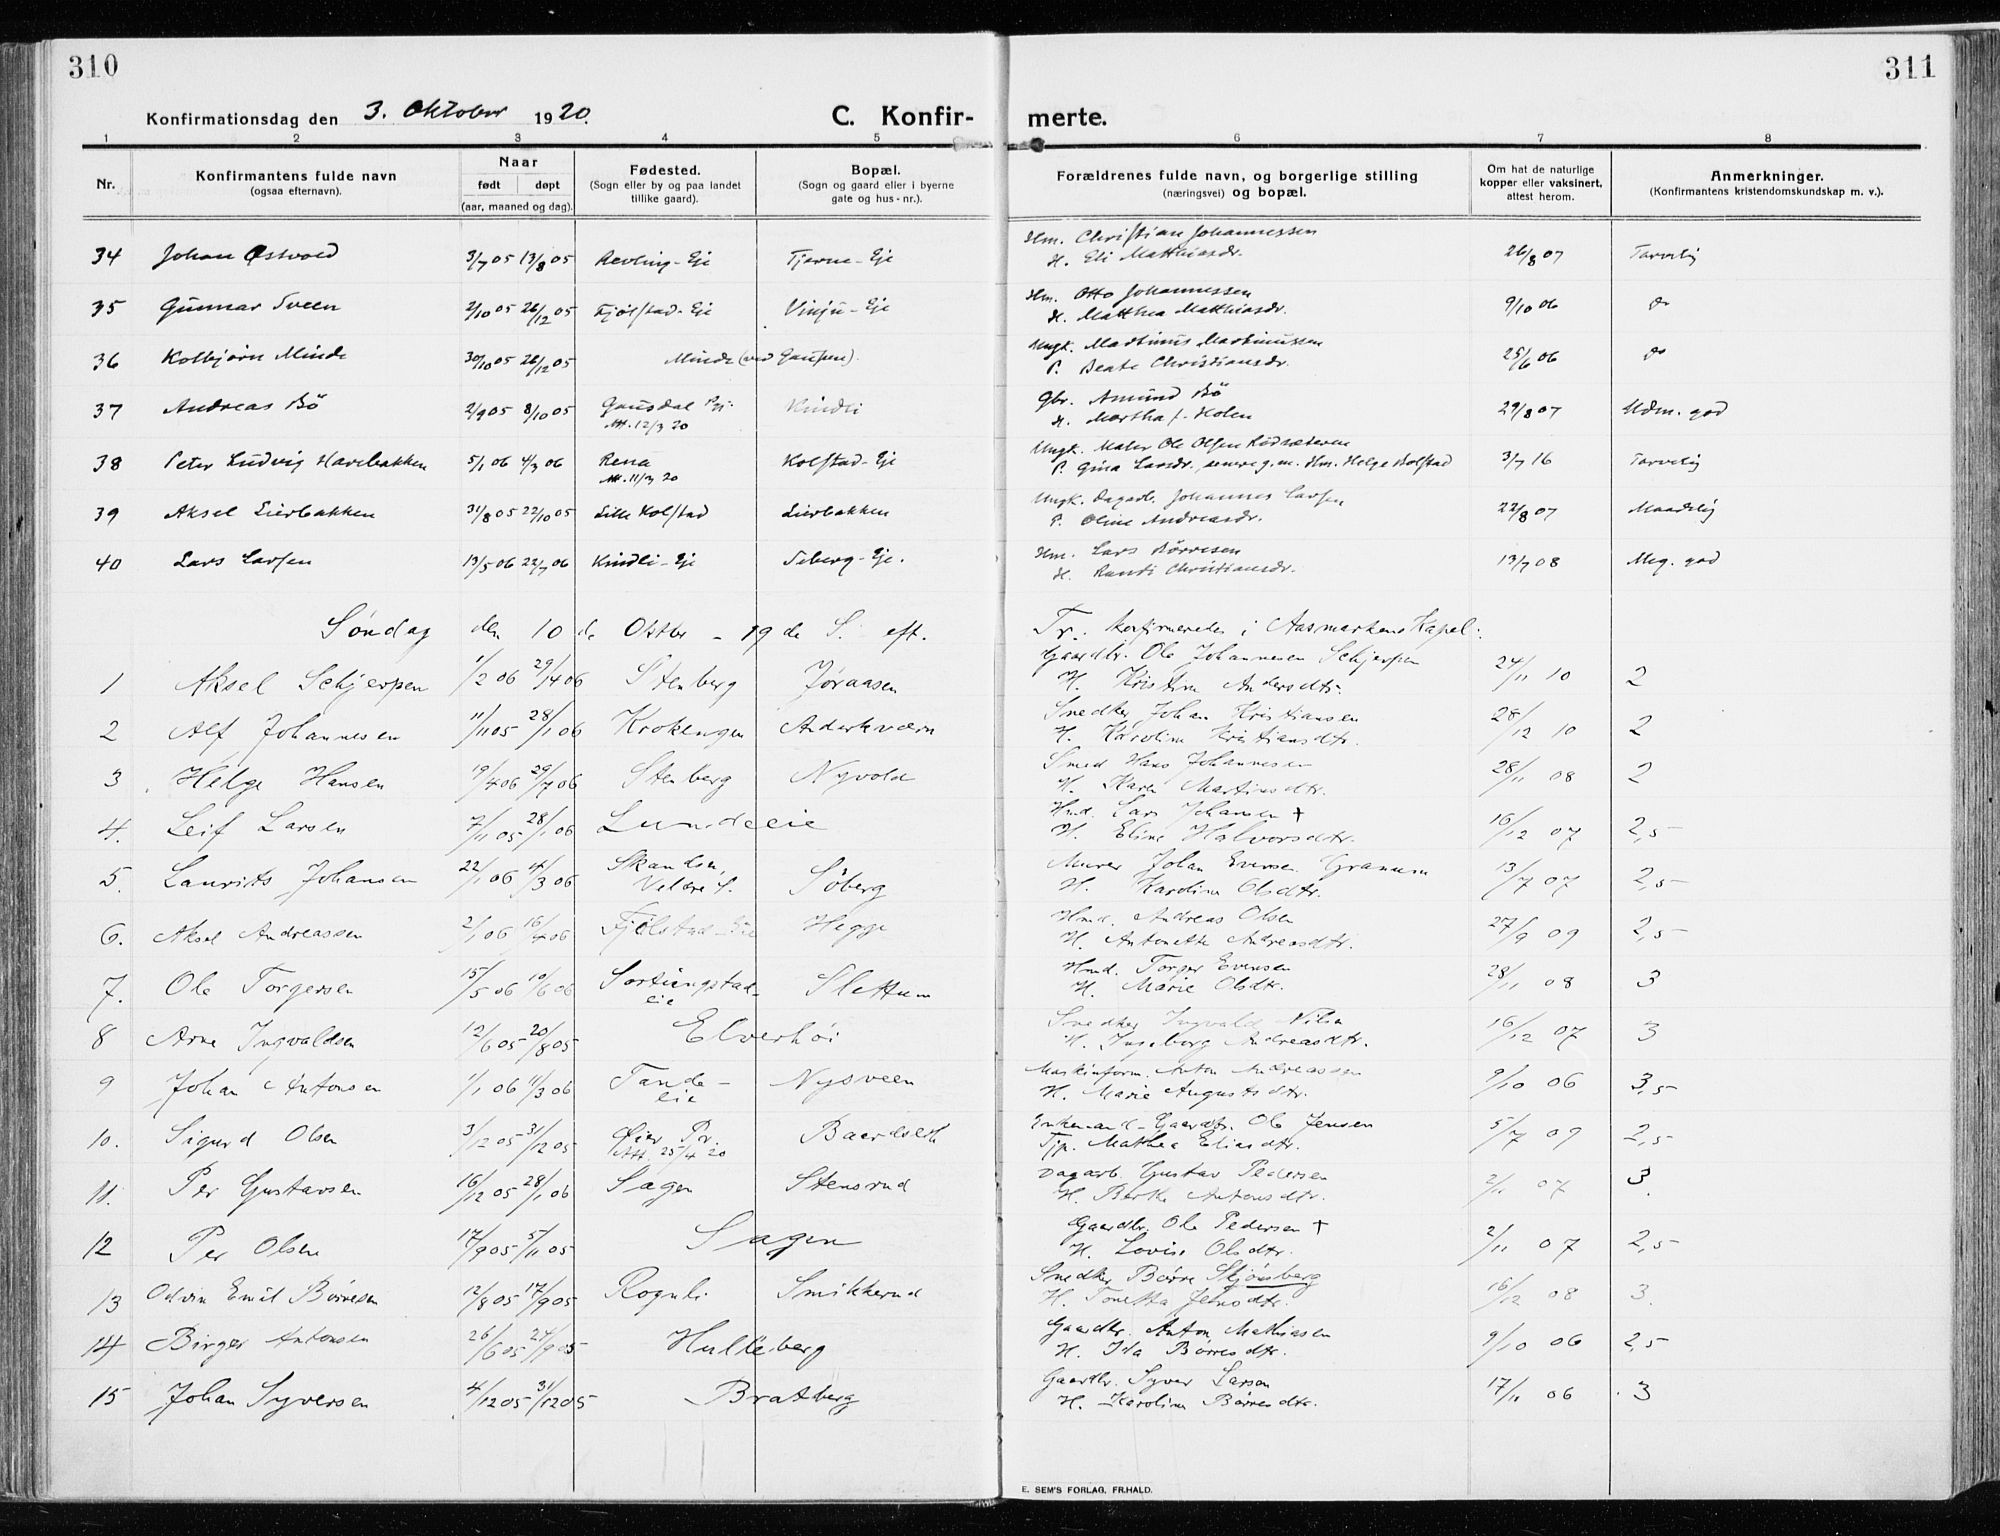 310
311
Konfirmationsdag den 3. Oktober 1920.
C. Konfir-
merte.
1 2 3 4 5 6 7 8
Nr.
Konfirmantens fulde navn
(ogsaa efternavn).
Naar
født døpt
(aar, maaned og dag).
Fødested.
(Sogn eller by og paa landet
tillike gaard).
Bopæl.
(Sogn og gaard eller i byerne
gate og hus-nr.).
Forældrenes fulde navn, og borgerlige stilling
(næringsvei) og bopæl.
Om hat de naturlige
kopper eller vaksinert,
attest herom.
Anmerkninger.
(Konfirmantens kristendomskundskap m. v.).
Hm. Christian Johannessen
34 Johan Østvold 3/7 05 13/8 05 Revling-Eje Tjerne-Eje H. Eli Matthiasdr. 26/8 07 Tarvelig
Hm. Otto Johannessen
35 Gunnar Sveen 2/10 05 26/12 05 Fjølstad-Eje Vinju-Eje H. Matthea Matthiasdr. 9/10 06 do
Ungk. Martinus Martinussen
36 Kolbjørn Minde 30/10 05 26/12 05 Minde (ved Gaupen). P. Beate Christiansdr. 25/6 06 do
Gbr. Amund Bö
37 Andreas Bö 2/9 05 8/10 05 Gausdal Pgj. Kindli H. Martha f. Holen 29/8 07 Udm. god
Att. 12/3 20
Ungk. Maler Ole Olsen Rødsæteren
38 Peter Ludvig Harebakken 5/1 06 4/3 06 Rena Kolstad-Eje P. Gina Larsdr., senere g.m. Hm. Helge Kolstad 3/7 16 Tarvelig
Att. 11/3 20
Ungk. Dagarb. Johannes Larsen
39 Aksel Lierbakken 31/8 05 22/10 05 Lille Kolstad Lierbakken P. Oline Andreasdr. 22/8 07 Maadelig
Hm. Lars Børresen
40 Lars Larsen 13/5 06 22/7 06 Kindli-Eje Seberg-Eje. H. Randi Christiansdr. 13/7 08 Meg. god
Søndag den 10de Oktbr - 19de S. eft. Tr.: konfirmeredes i Aasmarkens Kapel:
Gaardbr. Ole Johannesen Schjerpen
1 Aksel Schjerpen 1/2 06 29/14 06 Stenberg Jøraasen H. Kristine Andersdtr. 24/11 10 2
Snedker Johan Kristiansen
2 Alf Johannesen 11/11 05 28/1 06 Krokengen Anderkværn H. Karoline Kristiansdtr. 28/12 10 2
Smed Hans Johannesen
3 Helge Hansen 19/4 06 29/7 06 Stenberg Nyvold H. Karen Martinusdtr. 28/11 08 2
Hmd. Lars Johansen +
4. Leif Larsen 7/11 05 28/1 06 Lundeeie H. Eline Halvorsdtr. 16/12 07 2,5
Murer Johan Eversen Granum
5. Laurits Johansen 22/1 06 4/3 06 Skandsen, Veldre S. Söberg H. Karoline Olsdtr. 13/7 07 2,5
Hmd. Andreas Olsen
6. Aksel Andreassen 2/1 06 16/4 06 Fjölstad-Eie Hegge H. Antonette Andreasdtr. 27/9 09 2,5
Hmd. Torger Evensen
7. Ole Torgersen 15/5 06 10/6 06 Sortungstad-eie Slettum H. Marie Olsdtr. 28/11 08 3
Snedker Ingvald Nilsen
8 Arne Ingvaldsen 12/6 05 20/8 05 Elverhöi H. Ingeborg Andreasdtr. 16/12 07 3
Maskinform. Anton Andreassen
9 Johan Antonsen 1/1 06 11/3 06 Tande-eie Nysveen H. Marie Augustsdtr. 9/10 06 3,5
Enkemand-Gaardbr. Ole Jensen
10. Sigurd Olsen 3/12 05 31/12 05 Øier Pr. Baardseth Tjp. Mathea Eliasdtr. 5/7 09 2,5
Att. 25/4 20
Dagarb. Gustav Pedersen
11. Per Gustavsen 16/12 05 28/1 06 Sagen Stensrud H. Berthe Antonsdtr. 2/11 07 3.
Gaardbr. Ole Pedersen +
12 Per Olsen 17/9 05 5/11 05 Sagen H. Lovise Olsdtr. 2/11 07 2,5
Snedker Børre Skjönsberg
13 Odvin Emil Børresen 12/8 05 17/9 05 Rognli Smikkerud H. Tonetta Jensdtr. 16/12 08 3.
Gaardbr. Anton Mathiasen
14 Birger Antonsen 26/6 05 24/9 05 Hulleberg H. Ida Børresdtr. 9/10 06 2,5
Gaardbr. Syver Larsen
15 Johan Syversen 4/12 05 31/12 05 Bratberg H. Karoline Børresdtr. 17/11 06 3
E. SEM'S FORLAG, FR.HALD.